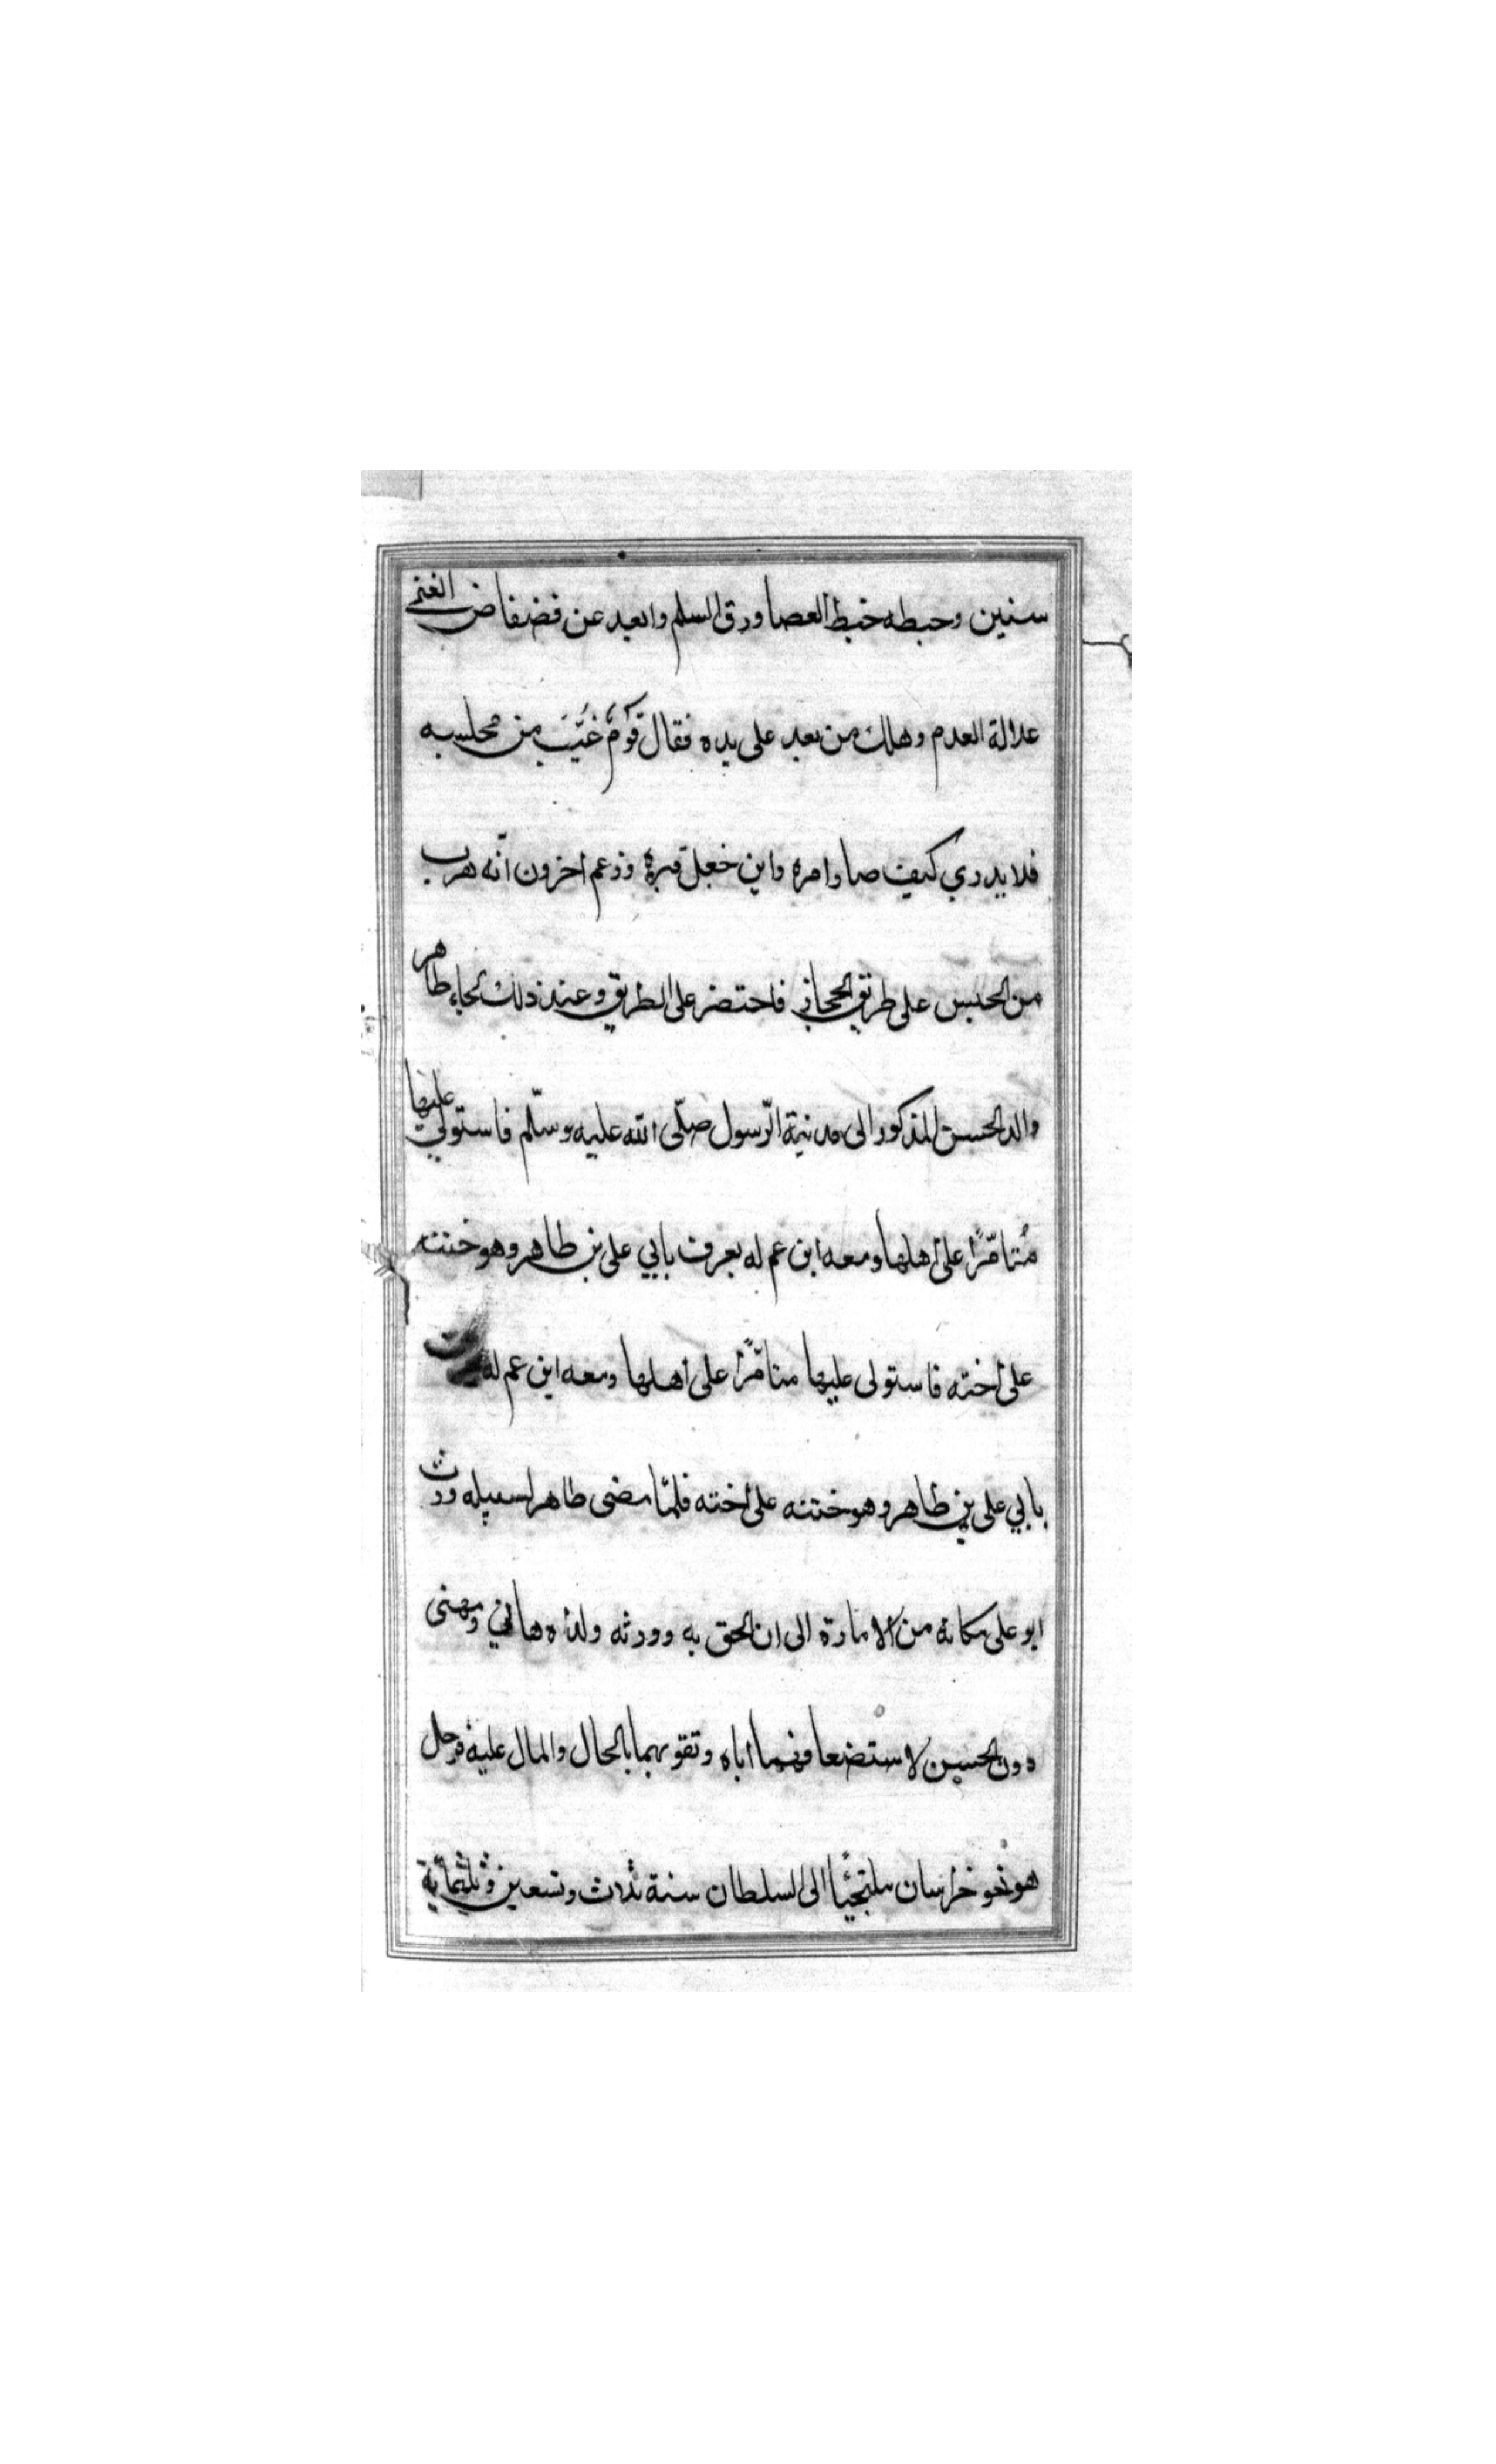 سنين وحبطه خبط العصا ورق السلم وابعد عن فضفاض الغنى
علالة العدم وهلك من بعد على يده فقال قومٌ غُيّبَ من مجلسه
فلا يدري كيف صار امره واين جعل قبره وزعم اخرون انّه هرب
من الحبس على طريق الحجاز فاحتضر على الطريق وعند ذلك لجاء طاهر
والد الحسن المذكور الى مدينة الرّسول صلّى الله عليه وسلّم فاستولى عليها
مُتامّرًا على اهلها ومعه ابن عم له يعرف بابي على بن طاهر وهو ختنه
على اخته فاستولى عليها متامّرًا على اهلها ومعه ابن عم له
بابي على بن طاهر وهو ختنه على اخته فلمّا مضى طاهر لسبيله ورث
ابو على مكانه من الامارة الى ان لحق به وورثه ولداه هاني ومهنى
دون الحسين لاستضعافهما اباه وتقويهما بالحال والمال عليه فرحل
هو نحو خراسان ملتجئًا الى السلطان سنة ثلاث وتسعين وثلثمائة